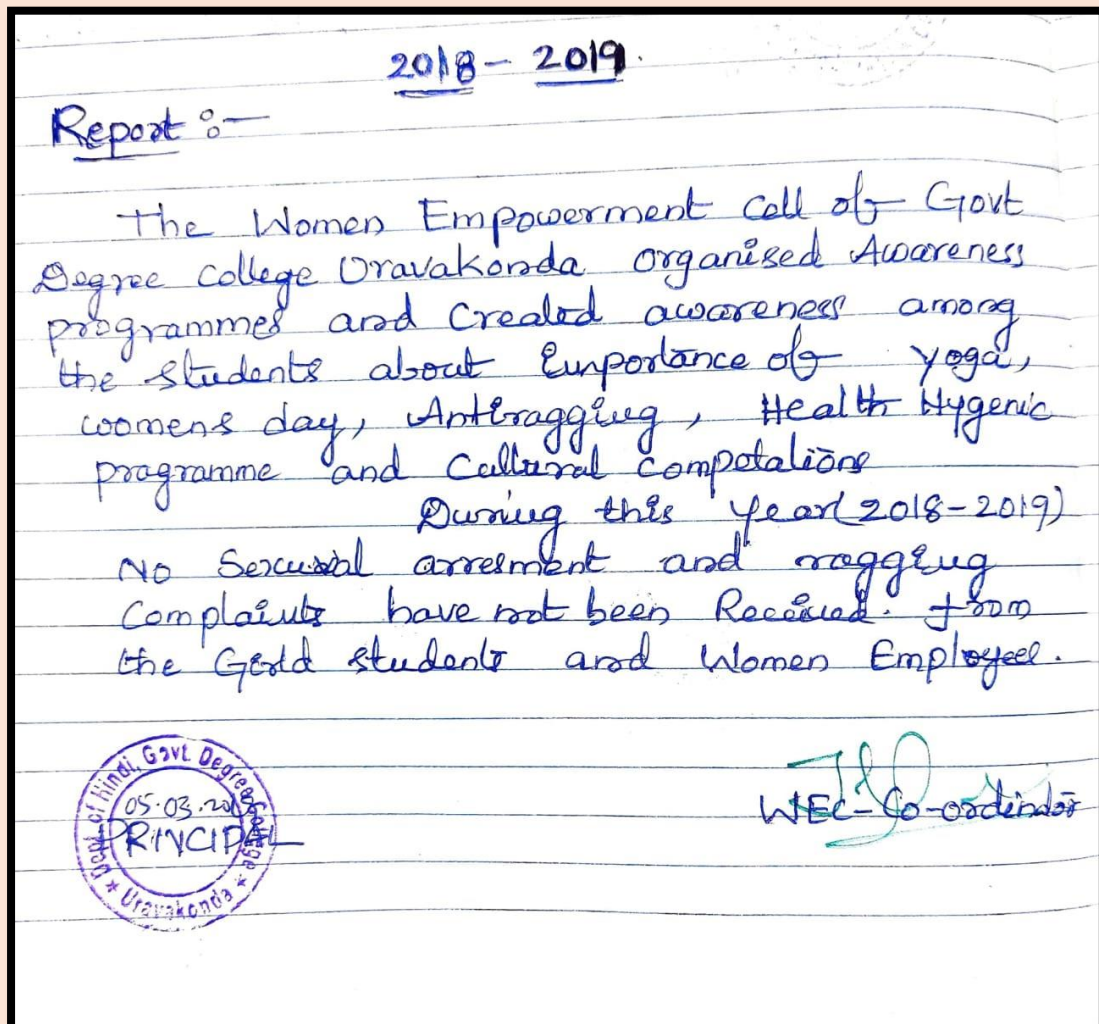 2018 - 2019.
Report :-
The Women Empowerment Cell of Govt
Degree College Uravakonda organised Awareness
programmes and Created awareness among
the students about Eimportance of yoga,
womens day, Antiragging, Health Hygenic
programme and Cultural Competations
During this year(2018-2019)
No Sexusial arresment and ragging
Complaints have not been Received. from
the Gerld students and Women Employees.
Dept. of Hindi, Govt. Degree College * Uravakonda *
05.03.
PRINCIPAL
WEC-Co-ordindor